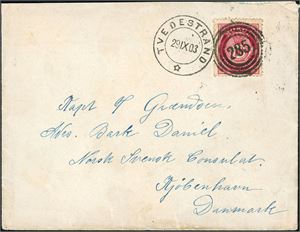 TVEDESTRAND
29 IX 03
285
Kapt J Grændsen
Adrs. Bark Daniel
Norsk Svensk Consulat
Kjöbenhavn
Danmark